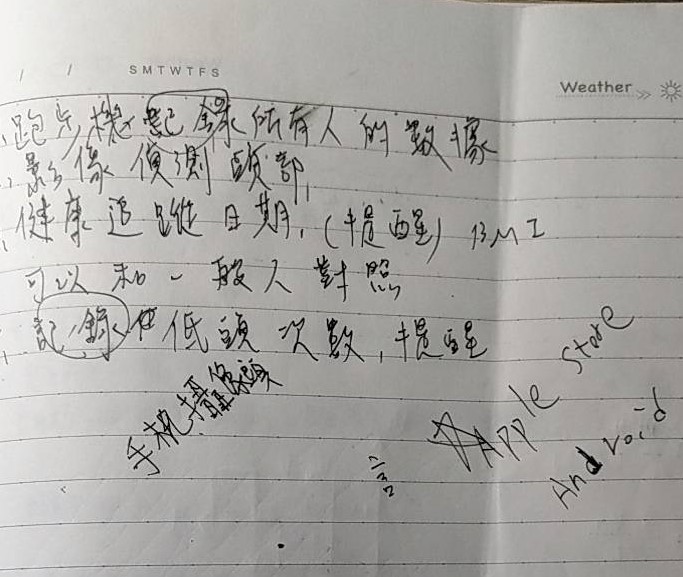 / / S M T W T F S
Weather
跑步機記錄所有人的數據
影像偵測頭部,
健康追蹤日期, (提醒) BMI
可以和一般人對照
記錄低頭次數, 提醒
手机攝像頭
Apple Store
Android
言